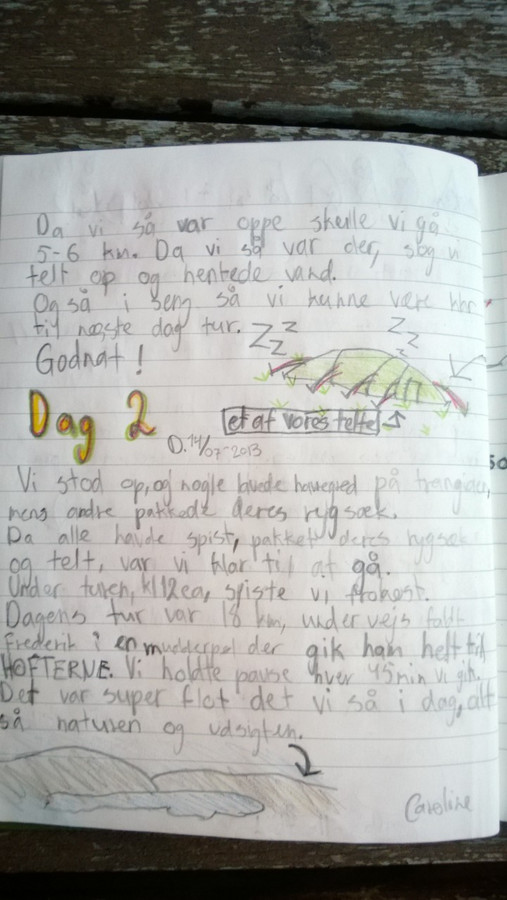 Da vi så var oppe skulle vi gå
5-6 km. Da vi så var der, slog vi
telt op og hentede vand.
Og så i seng så vi kunne være klar
til næste dag tur. Z z z z z z
Godnat!
et af vores telte
Dag 2
D. 14/07-2013
Vi stod op, og nogle lavede havregrød på trangiaer,
mens andre pakkede deres rygsæk.
Da alle havde spist, pakket deres rygsæk
og telt, var vi klar til at gå.
Under turen, kl 12 ca, spiste vi frokost.
Dagens tur var 18 km, undervejs faldt
Frederik i en mudderpøl der gik ham helt til
HOFTERNE. Vi holdte pause hver 45 min vi gik.
Det var super flot det vi så i dag, alt
så naturen og udsigten.
Caroline
so